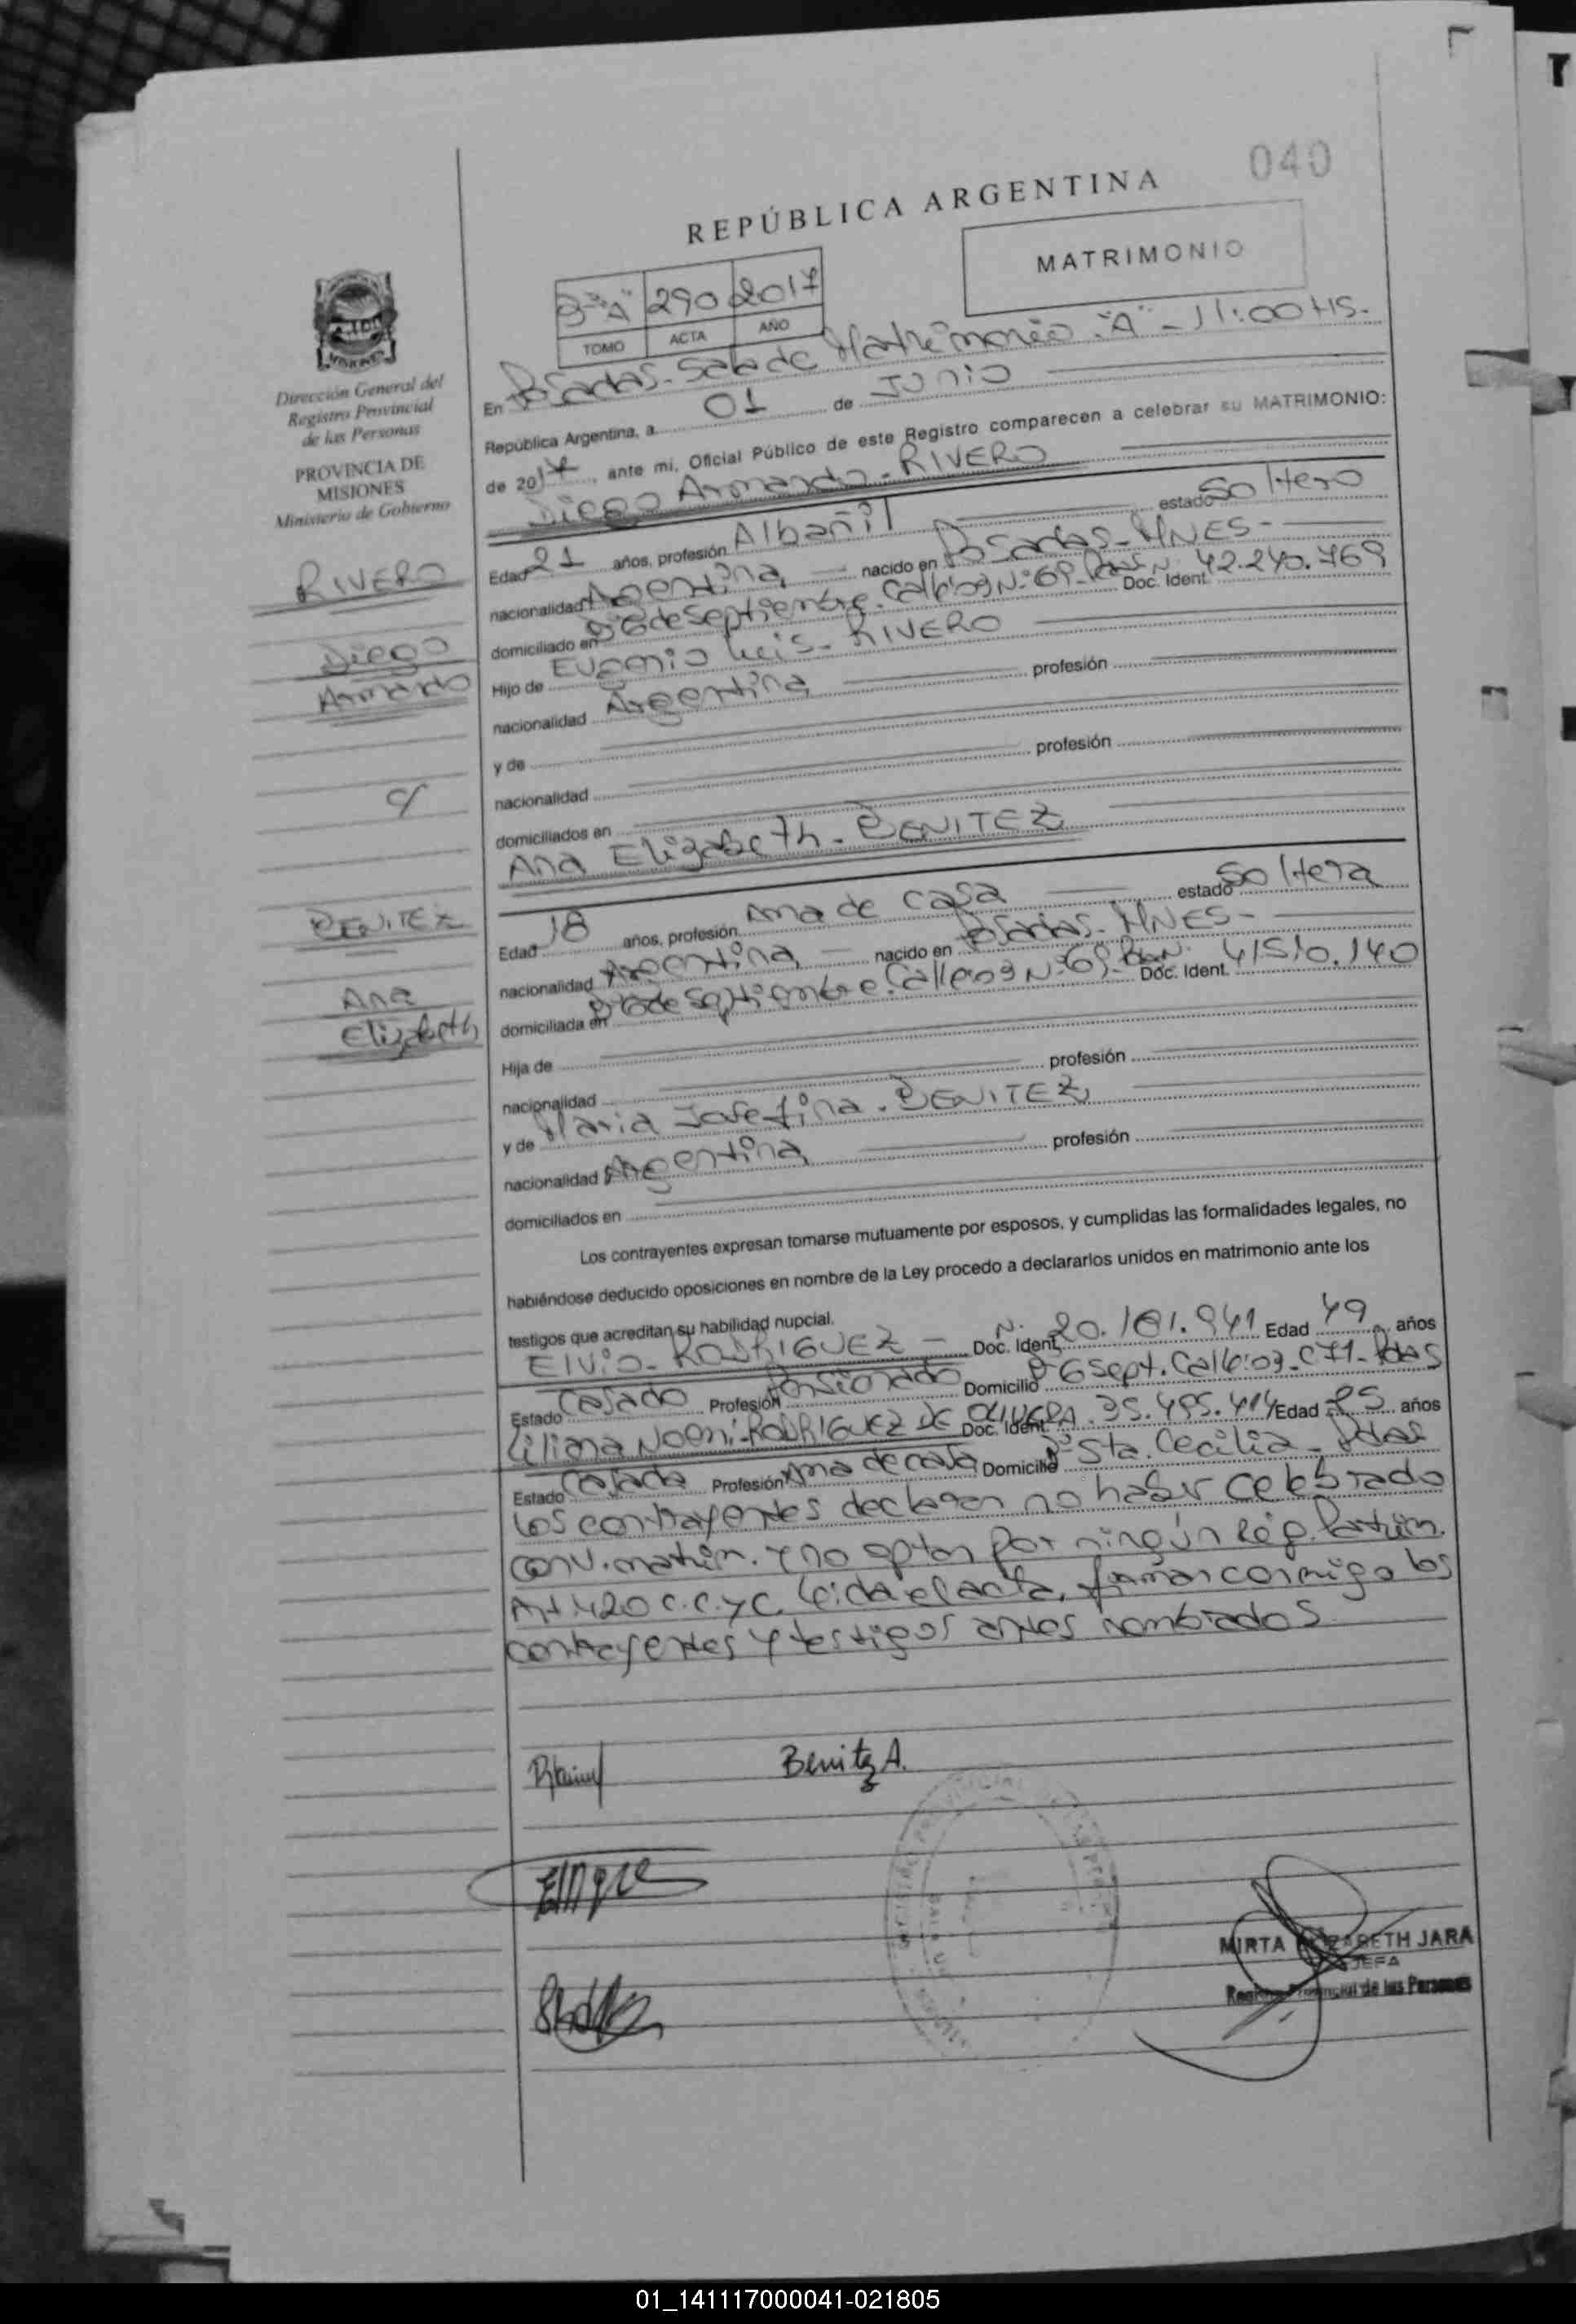 040
REPÚBLICA ARGENTINA
MATRIMONIO
3º"A" 290 2017
TOMO ACTA AÑO
Dirección General del
Registro Provincial
de las Personas
PROVINCIA DE
MISIONES
Ministerio de Gobierno
En Posadas. Sala de Matrimonio "A" - 11:00 HS.
República Argentina, a 01 de Junio
de 2017, ante mi, Oficial Público de este Registro comparecen a celebrar su MATRIMONIO:
Diego Armando - RIVERO
Edad 21 años, profesión Albañil estado Soltero
nacionalidad Argentina nacido en Posadas - MNES -
domiciliado en Bº 6 de Septiembre. Calle: 09 Nº 69 - Doc. Ident. Nº 42.240.769
Hijo de Eugenio Luis - RIVERO
nacionalidad Argentina profesión
y de
nacionalidad profesión
domiciliados en
Ana Elizabeth - BENITEZ
Edad 18 años, profesión Ama de casa estado Soltera
nacionalidad Argentina nacido en Posadas - MNES -
domiciliada en Bº 6 de Septiembre. Calle: 09 Nº 69 - Doc. Ident. 41510.140
Hija de
nacionalidad profesión
y de Maria Josefina - BENITEZ
nacionalidad Argentina profesión
domiciliados en
RIVERO
Diego
Armando
c/
BENITEZ
Ana
Elizabeth
Los contrayentes expresan tomarse mutuamente por esposos, y cumplidas las formalidades legales, no
habiéndose deducido oposiciones en nombre de la Ley procedo a declararlos unidos en matrimonio ante los
testigos que acreditan su habilidad nupcial.
Elvio - RODRIGUEZ - Doc. Ident. Nº 20.181.941 Edad 49 años
Estado Casado Profesión Pensionado Domicilio Bº 6 Sept. Calle: 09 - C71 - Pdas
Liliana Noemi - RODRIGUEZ DE OLIVERA Doc. Ident. 35.495.414 Edad 25 años
Estado Casada Profesión Ama de casa Domicilio Bº Sta. Cecilia - Pdas
Los contrayentes declaran no haber celebrado
conv. matrim. y no optan por ningún Rég. Patrim.
Art. 420 C.C. y C. Leida el acta, firman conmigo los
contrayentes y testigos antes nombrados
Benitez A.
MIRTA ELIZABETH JARA
JEFA
Registro Provincial de las Personas
01_141117000041-021805